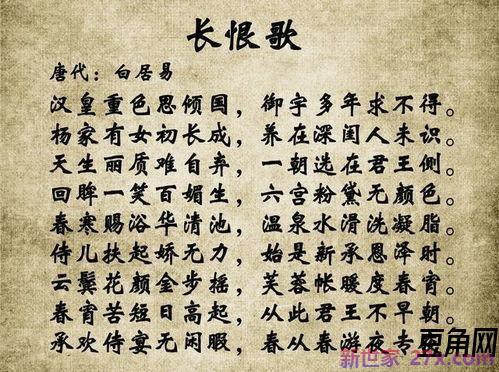 长恨歌
唐代：白居易
汉皇重色思倾国，御宇多年求不得。
杨家有女初长成，养在深闺人未识。
天生丽质难自弃，一朝选在君王侧。
回眸一笑百媚生，六宫粉黛无颜色。
春寒赐浴华清池，温泉水滑洗凝脂。
侍儿扶起娇无力，始是新承恩泽时。
云鬓花颜金步摇，芙蓉帐暖度春宵。
春宵苦短日高起，从此君王不早朝。
承欢侍宴无闲暇，春从春游夜专夜
新世家 27x.com